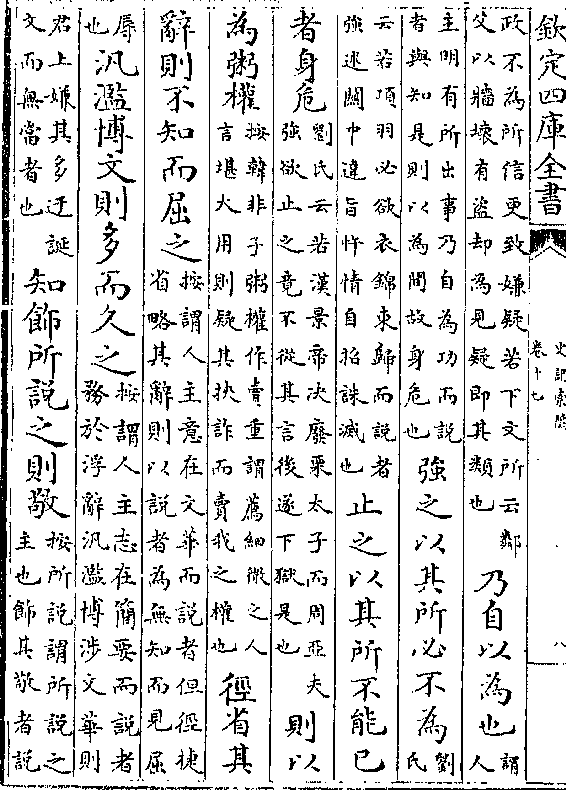 欽定四庫全書
史記索隱
卷十七
八
政不為所信更致嫌疑若下文所云鄰
父以牆壞有盜却為見疑即其類也
乃自以為也謂
人
主明有所出事乃自為功而説
者與知是則以為間故身危也
強之以其所必不為劉
氏
云若項羽必欲衣錦東歸而説者
強述關中違旨忤情自招誅滅也
止之以其所不能已
者身危
劉氏云若漢景帝决廢栗太子而周亞夫
強欲止之竟不從其言後遂下獄是也
則以
為粥權
按韓非子粥權作賣重謂薦細微之人
言堪大用則疑其挾詐而賣我之權也
徑省其
辭則不知而屈之
按謂人主意在文華而説者但徑捷
省略其辭則以説者為無知而見屈
辱
也
汎濫博文則多而久之
按謂人主志在簡要而説者
務於浮辭汎濫博涉文華則
君上嫌其多迂誕
文而無當者也
知飾所説之則敬
按所説謂所説之
主也飾其敬者説